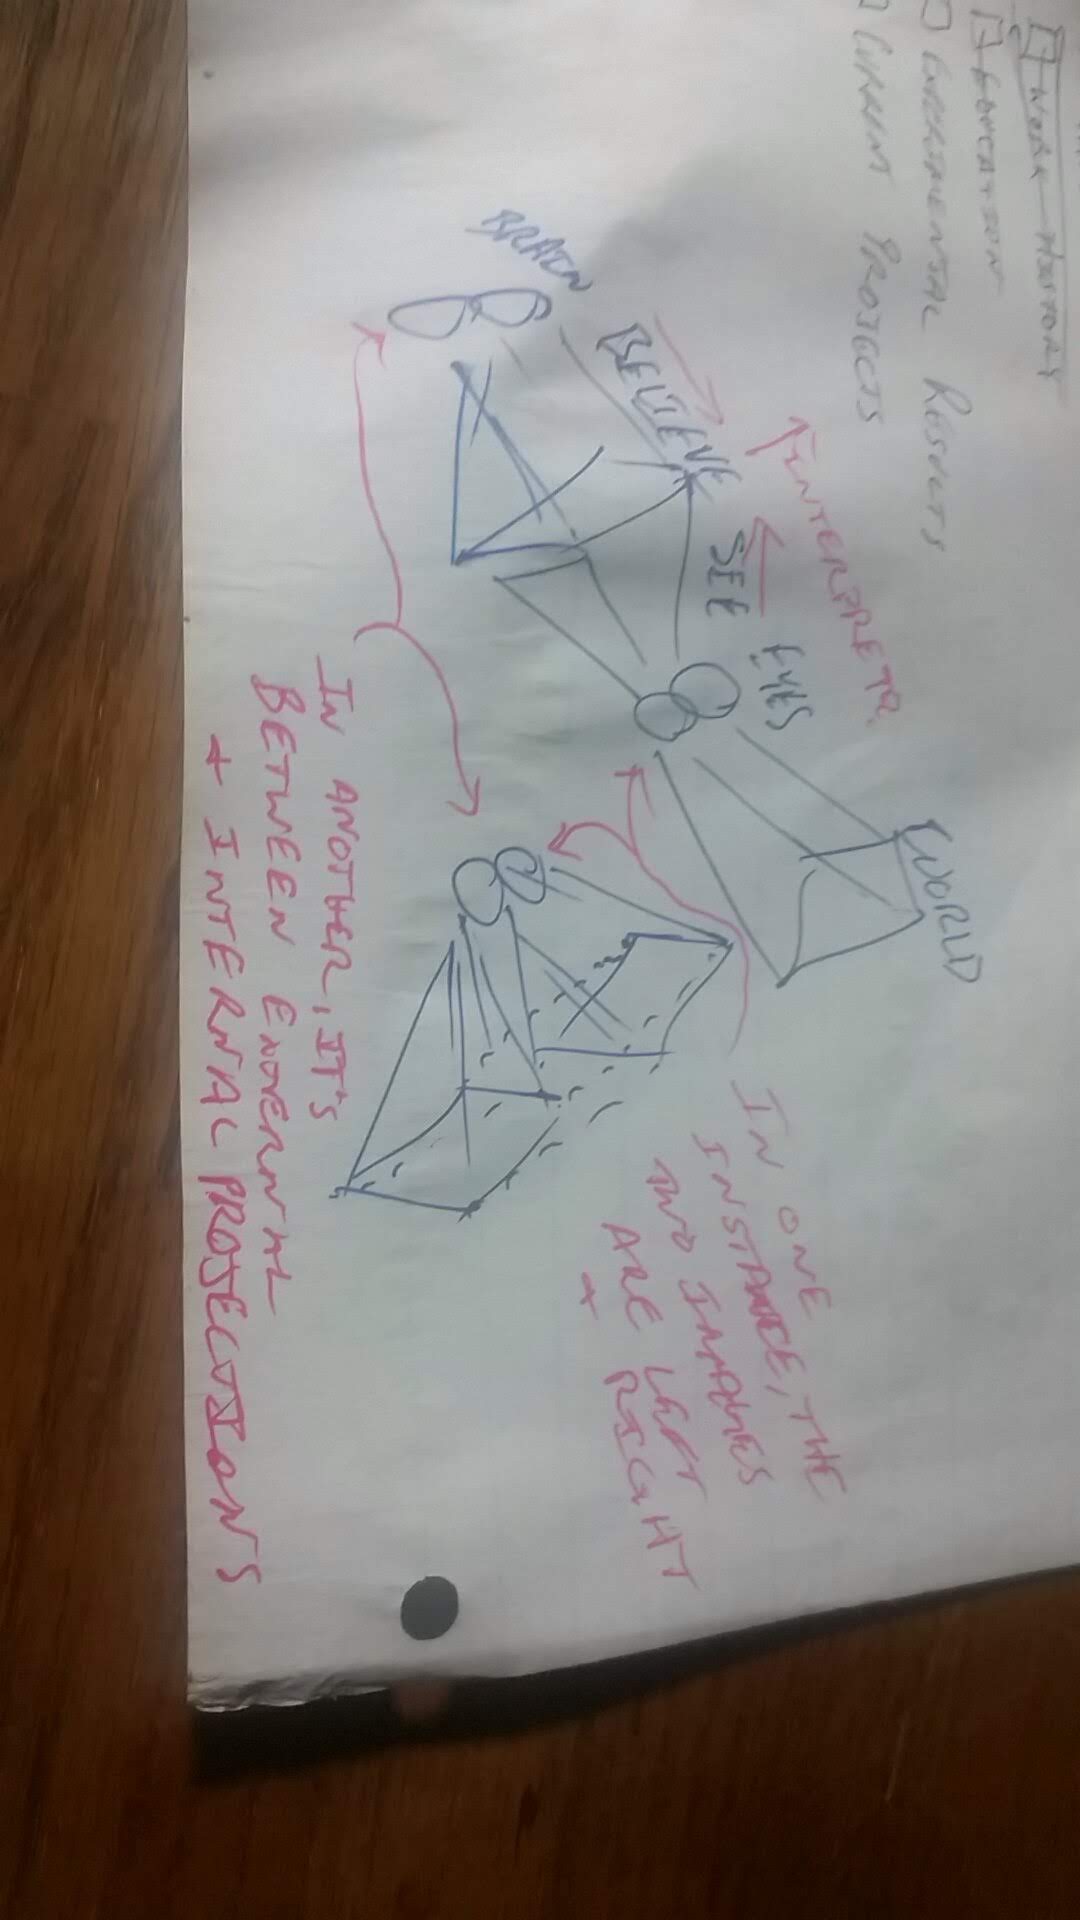 WORK HISTORY
EDUCATION
EXPERIMENTAL RESULTS
CURRENT PROJECTS
BRAIN
BELIEVE
SEE
EYES
WORLD
IN ONE
INSTANCE, THE
TWO IMAGES
ARE LEFT
+ RIGHT
IN ANOTHER, IT'S
BETWEEN EXTERNAL
+ INTERNAL PROJECTIONS